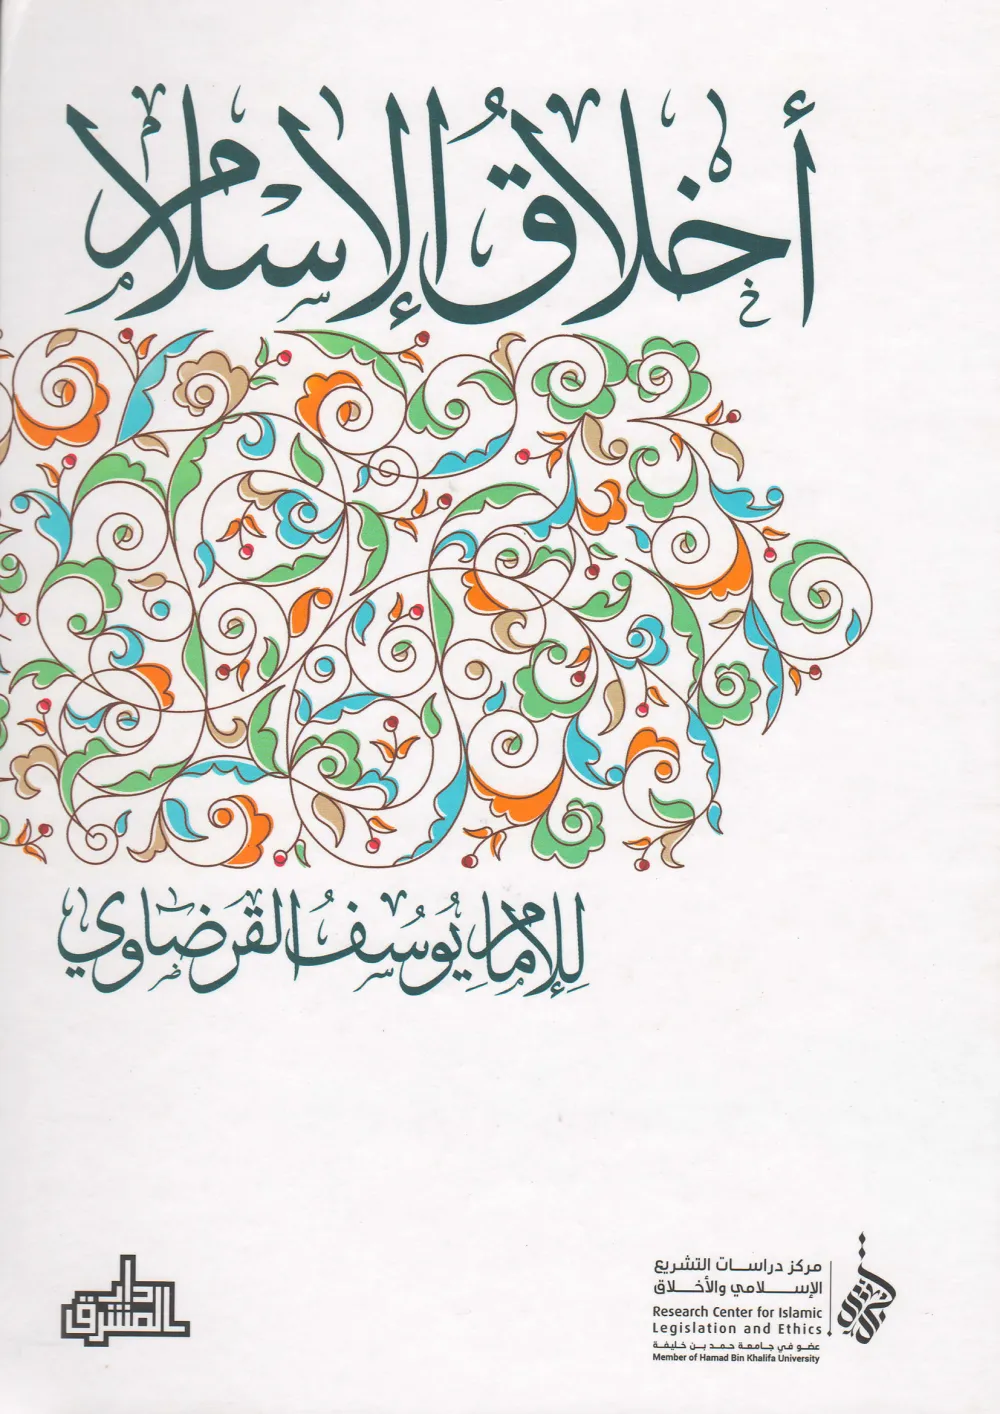 أخلاق الإسلام
للإمام يوسف القرضاوي
دار المشرق
مركز دراسات التشريع
الإسلامي والأخلاق
Research Center for Islamic
Legislation and Ethics
عضو في جامعة حمد بن خليفة
Member of Hamad Bin Khalifa University